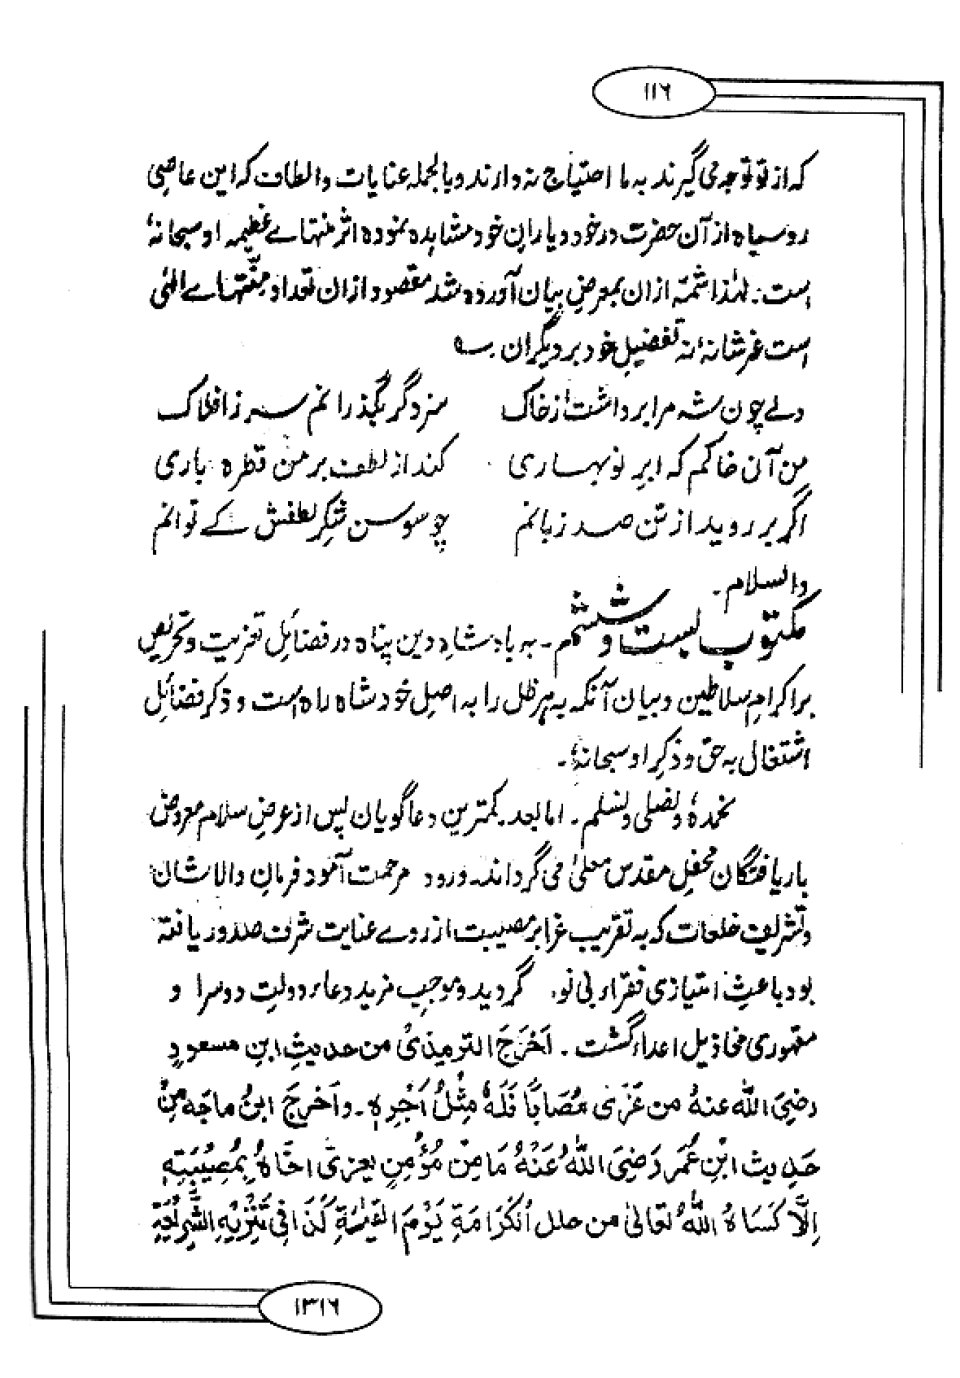 ۱۱۶
که از تو توجه می گیرند به ما احتیاج نه دارند و بالجمله عنایات و الطاف که این عاصی
روسیاه از آن حضرت در خود و یاران خود مشاهده نموده اثر منتهاے عظیمه او سبحانهٗ
است۔ لهٰذا شمّه ازان بمعرض بیان آورده شد مقصود ازان تعداد منّتهاے الٰهی
است عز شانهٗ نه تفضیلِ خود بر دیگران ؎
ولے چون شه مرا برداشت از خاک سزد گر بگذرانم سر ز افلاک
من آن خاکم که ابرِ نو بهاری کند از لطف بر من قطره باری
اگر بر روید از تن صد زبانم چو سوسن شکرِ لطفش کے توانم
والسلام۔
مکتوب بست و ششم۔ به بادشاهِ دین پناه در فضائلِ تعزیت و تحریص
بر اکرامِ سلاطین و بیان آنکه به هر ظل را به اصلِ خود شاه راه است و ذکر فضائلِ
اشتغال به حق و ذکرِ او سبحانهٗ۔
نحمدهٗ و نصلی و نسلم۔ اما بعد۔ کمترین دعاگویان پس از عرضِ سلام معروض
باریافتگان محفلِ مقدس معلیٰ می گرداند۔ ورود مرحمت آمود فرمانِ والا شان
و تشریف خلعات که به تقریب عزا بر مصیبت از روے عنایت شرف صدور یافته
بود باعثِ امتیازی فقراء بی نو، گردید و موجب مزید دعاء دولتِ دوسرا و
مقهوری مخاذیل اعداء گشت۔ اَخْرَجَ الترمذیُّ من حدیثِ ابنِ مسعودٍ
رضِیَ اللّٰهُ عنهُ من عَزّٰی مُصَابًا فَلَهٗ مِثْلُ اَجْرِهٖ۔ و اَخرجَ ابنُ ماجَه مِنْ
حَدِیث ابْنِ عُمَر رَضِیَ اللّٰهُ عَنْهُ مَا مِنْ مُؤْمِنٍ یعزیْ اخَاهُ بِمُصِیْبَتِهٖ
اِلَّا کَسَاهُ اللّٰهُ تعَالیٰ من حلل الْکَرَامَةِ یَوْمَ القیٰمَةِ کَذَا فِیْ تَنْزِیْهِ الشَّرِیْعَةِ
۱۳۱۶